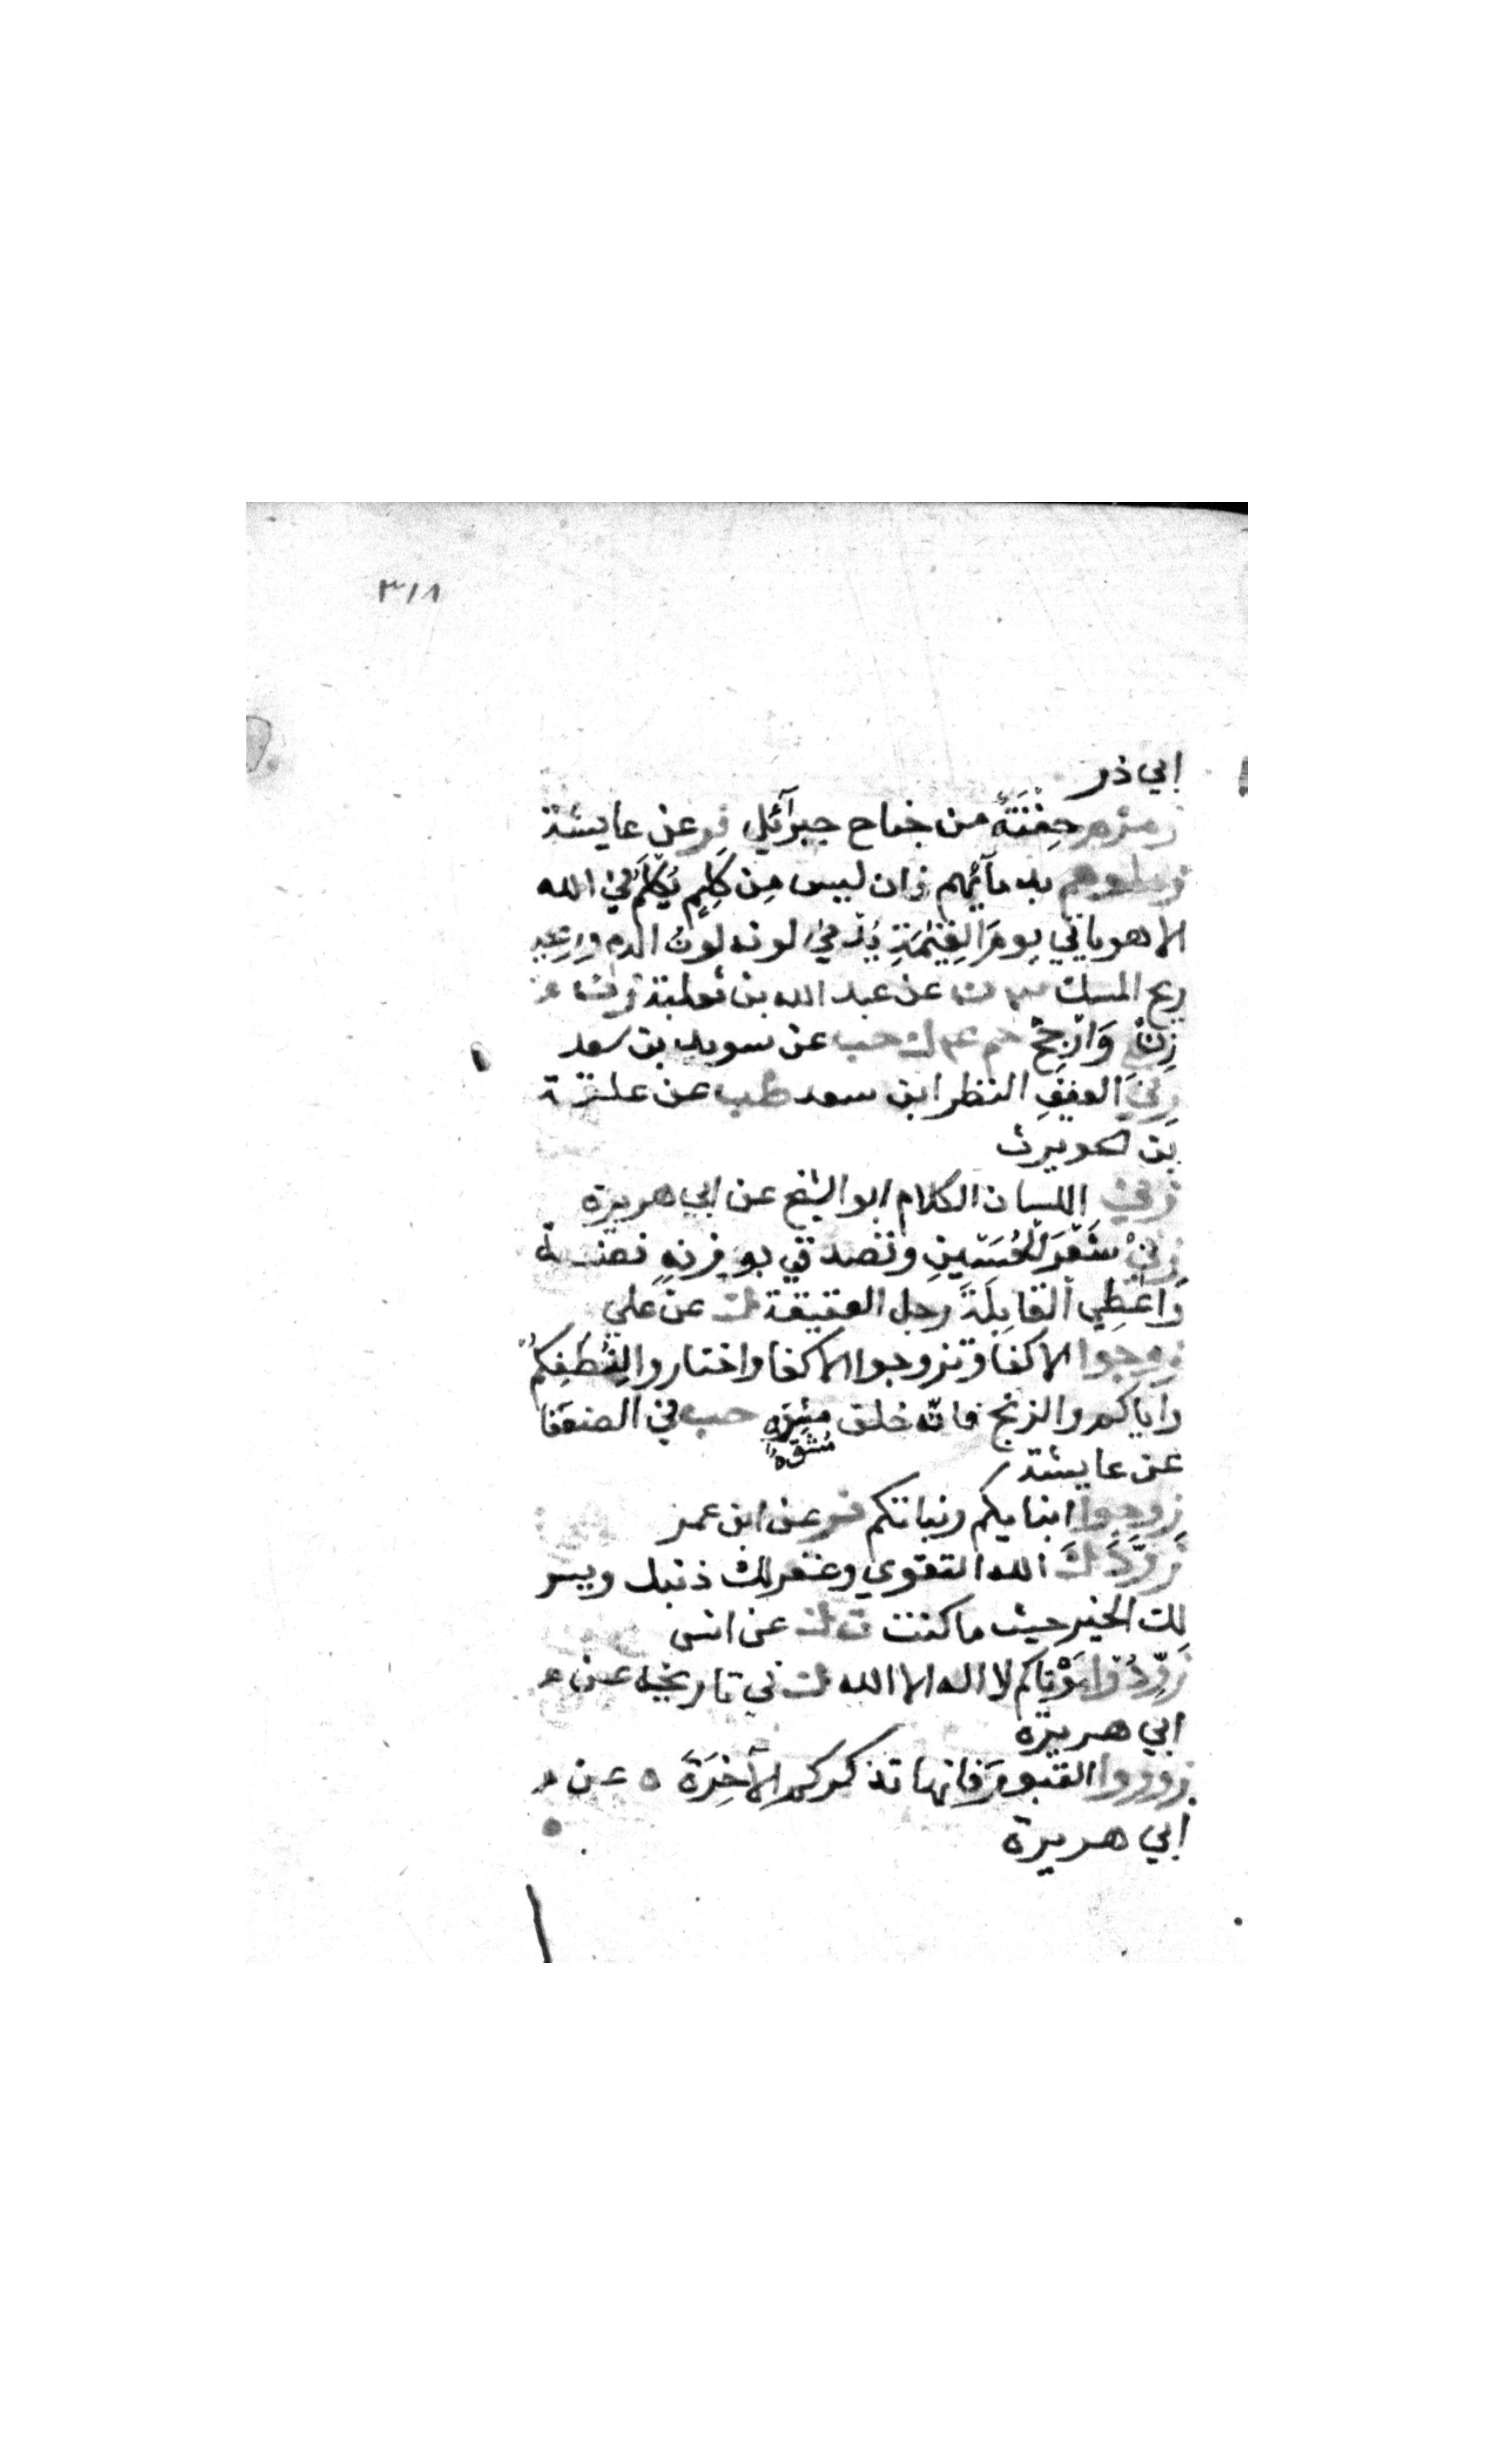 ٣١٨
ابي ذر
زمزم حِفْنَةٌ من جناح جبرآئيل فر عن عايشة
زملوهم بدمآئهم فان ليس مِن كَلِمٍ يُكلَمُ في الله
الا هو ياتي يومَ القِيٰمَةِ يُدْمي لونه لَونُ الدم وريحه
ريح المسك ن عن عبد الله بن ثعلبة
زِنْ وَارْجِحْ حم ك حب عن سويد بن
زِني العينِ النظر ابن سعد طب عن علقمة
بن الحويرث
زني اللسان الكلام ابو الشيخ عن ابي هريرة
زِني شَعَرَ الحُسَينِ وتصدقي بوزنه فضة
وَاعْطِي القابِلَةَ رجل العقيقة ك عن علي
زوجوا الاكفا وتزوجوا الاكفا واختاروا لِنُطَفِكُم
واياكم والزنج فانه خلق مشوه حب في الضعفا
مُشَوَّه
عن عايشة
زوجوا ابنايكم وبناتكم فر عن ابن عمر
زَوَّدَكَ الله التقوي وغفر لك ذنبك ويسر
لك الخير حيث ما كنت ت ك عن انس
زَوِّدُوا مَوْتاكم لا اله الا الله ك في تاريخه عن
ابي هريرة
زوروا القبور فانها تذكركم الآخِرَةَ ه عن
ابي هريرة